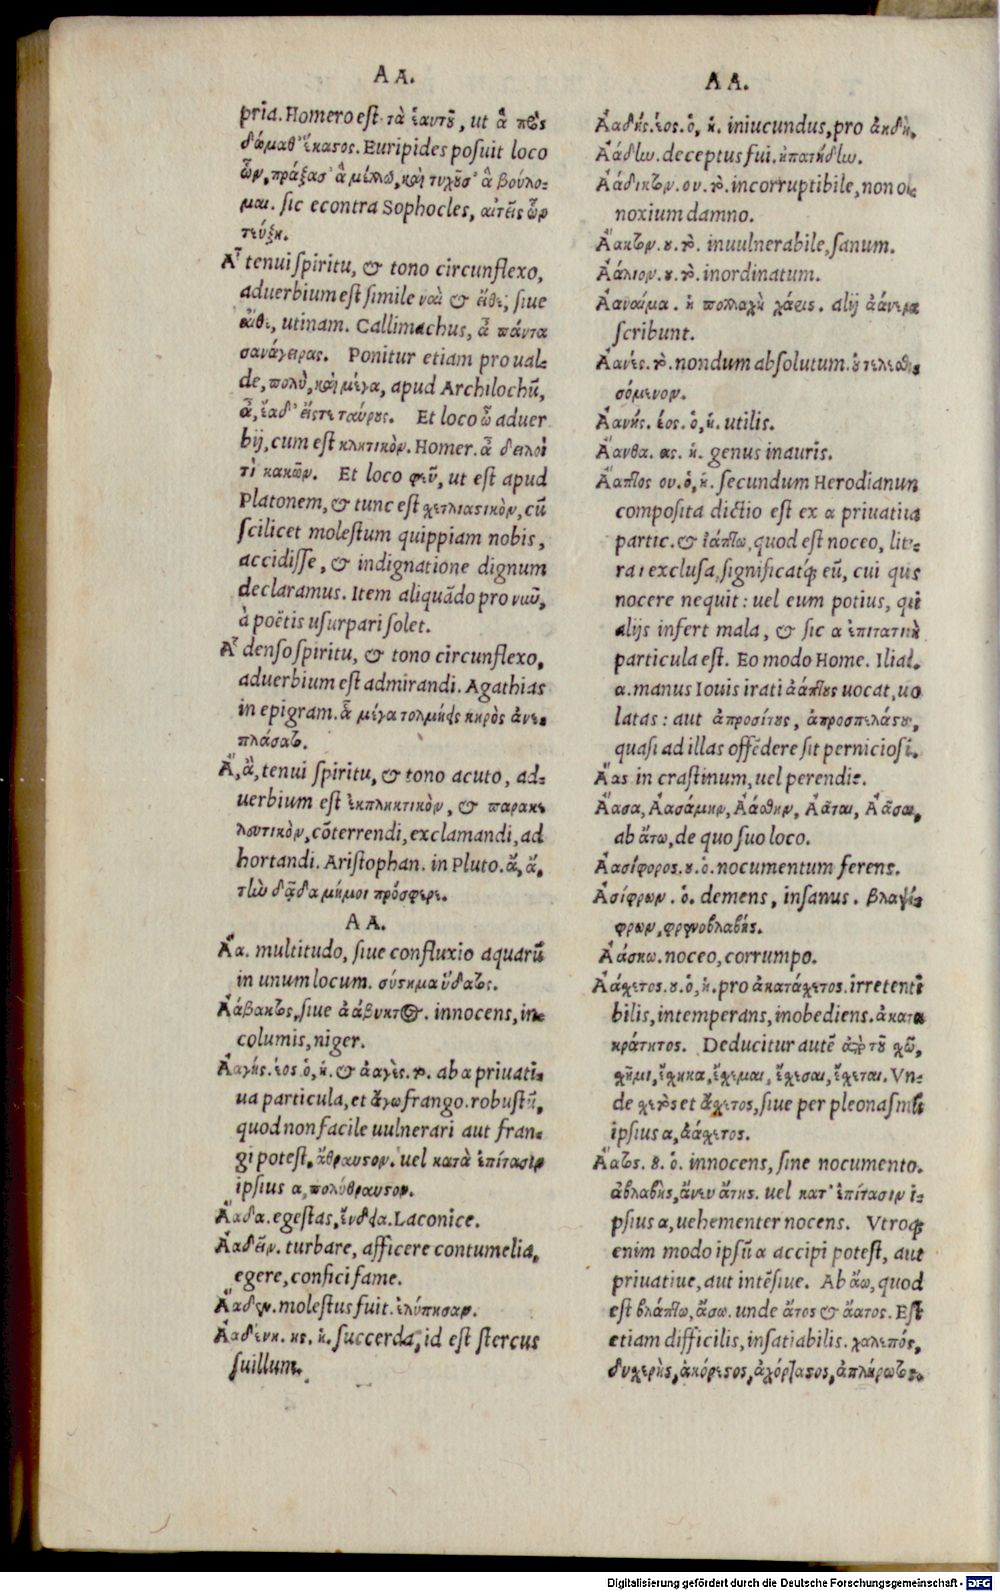 A A.
pria. Homero est τὰ ἑαυτοῦ, ut ἃ πρὸς
δώμαθ᾽ ἕκαστος. Euripides posuit loco
ὧν, πράξασ᾽ ἃ μέλλω, καὶ τυχοῦσ᾽ ἃ βούλο-
μαι. sic econtra Sophocles, αἰτεῖς ὧν
τεύξῃ.
Ἆ tenui spiritu, & tono circunflexo,
aduerbium est simile ναὶ & εἴθε, siue
αἴθε, utinam. Callimachus, ἆ πάντα
σανάγειρας. Ponitur etiam pro ual-
de, πολὺ, καὶ μέγα, apud Archilochū,
ἆ, ἔαδ᾽ εἴστε ταύρους. Et loco ὦ aduer
bij, cum est κλητικὸν. Homer. ἆ δειλοὶ
τὶ κακῶν. Et loco φεῦ, ut est apud
Platonem, & tunc est σχετλιαστικὸν, cū
scilicet molestum quippiam nobis,
accidisse, & indignatione dignum
declaramus. Item aliquādo pro νοῦν,
à poëtis usurpari solet.
Ἇ denso spiritu, & tono circunflexo,
aduerbium est admirandi. Agathias
in epigram. ἇ μέγα τολμήεις κηρὸς ἀνε-
πλάσατο.
Ἄ, ἂ, tenui spiritu, & tono acuto, ad-
uerbium est ἐκπληκτικὸν, & παρακε
λευστικὸν, cōterrendi, exclamandi, ad
hortandi. Aristophan. in Pluto. ἄ, ἄ,
τὴν δᾷδα μή μοι πρόσφερε.
A A.
Ἄα. multitudo, siue confluxio aquarū
in unum locum. σύστημα ὕδατος.
Ἀάβακτος, siue ἀάβυκτος. innocens, in-
columis, niger.
Ἀαγής. έος ὁ, ἡ. & ἀαγὲς. τὸ. ab α priuati-
ua particula, et ἄγω frango. robustū,
quod non facile uulnerari aut fran-
gi potest. ἄθραυστον. uel κατὰ ἐπίτασιν
ipsius α, πολύθραυστον.
Ἄαδα. egestas, ἔνδεια. Laconice.
Ἀαδεῖν. turbare, afficere contumelia,
egere, confici fame.
Ἄαδον. molestus fuit. ἐλύπησαν.
Ἀαδένη. ης. ἡ. succerda, id est stercus
suillum.
A A.
Ἀαδής. έος. ὁ, ἡ. iniucundus, pro ἀηδὴς.
Ἀάδην. deceptus fui. ἠπατήθην.
Ἀάδικτον. ου. τὸ. incorruptibile, non ob-
noxium damno.
Ἄακτον. ου. τὸ. inuulnerabile, sanum.
Ἀάλιον. ου. τὸ. inordinatum.
Ἀαναίμα. ἡ πολλαχὴ χάρις. alij ἀάνεμα
scribunt.
Ἀανές. τὸ. nondum absolutum. οὐ τελεσθη-
σόμενον.
Ἀανής. έος. ὁ, ἡ. utilis.
Ἄανθα. ας. ἡ. genus inauris.
Ἄαπτος ου. ὁ, ἡ. secundum Herodianum
composita dictio est ex α priuatiua
partic. & ἰάπτω, quod est noceo, lite-
ra ι exclusa, significatq́; eū, cui quis
nocere nequit: uel eum potius, qui
alijs infert mala, & sic α ἐπιτατικὴ
particula est. Eo modo Home. Iliad.
α. manus Iouis irati ἀάπτους uocat, uo
latas: aut ἀπροσίτους, ἀπροσπελάστους,
quasi ad illas offēdere sit perniciosū.
Ἄας in crastinum, uel perendie.
Ἄασα, Ἀασάμην, Ἀάσθην, Ἀᾶται, Ἀᾶσαι,
ab ἄτω, de quo suo loco.
Ἀασίφορος. ου. ὁ. nocumentum ferens.
Ἀασίφρων. ὁ. demens, insanus. βλαψί-
φρων, φρενοβλαβής.
Ἀάσκω. noceo, corrumpo.
Ἀάσχετος. ου. ὁ, ἡ. pro ἀκατάσχετος. irretenti
bilis, intemperans, inobediens. ἀκατα
κράτητος. Deducitur autē ἀπὸ τοῦ σχῶ,
σχῆμι, ἔσχηκα, ἔσχεμαι, ἔσχεσαι, ἔσχεται. Vn-
de σχετὸς et ἄσχετος, siue per pleonasmū
ipsius α, ἀάσχετος.
Ἄατος. ου. ὁ. innocens, sine nocumento.
ἀβλαβὴς, ἄνευ ἄτης. uel κατ᾽ ἐπίτασιν i-
psius α, uehementer nocens. Vtroq;
enim modo ipsū α accipi potest, aut
priuatiue, aut intēsiue. Ab ἄω, quod
est βλάπτω, ἄσω. unde ἄτος & ἄατος. Est
etiam difficilis, insatiabilis. χαλεπός,
δυσχερὴς, ἀκόρεστος, ἀχόρταστος, ἀπλήρωτος.
Digitalisierung gefördert durch die Deutsche Forschungsgemeinschaft - DFG